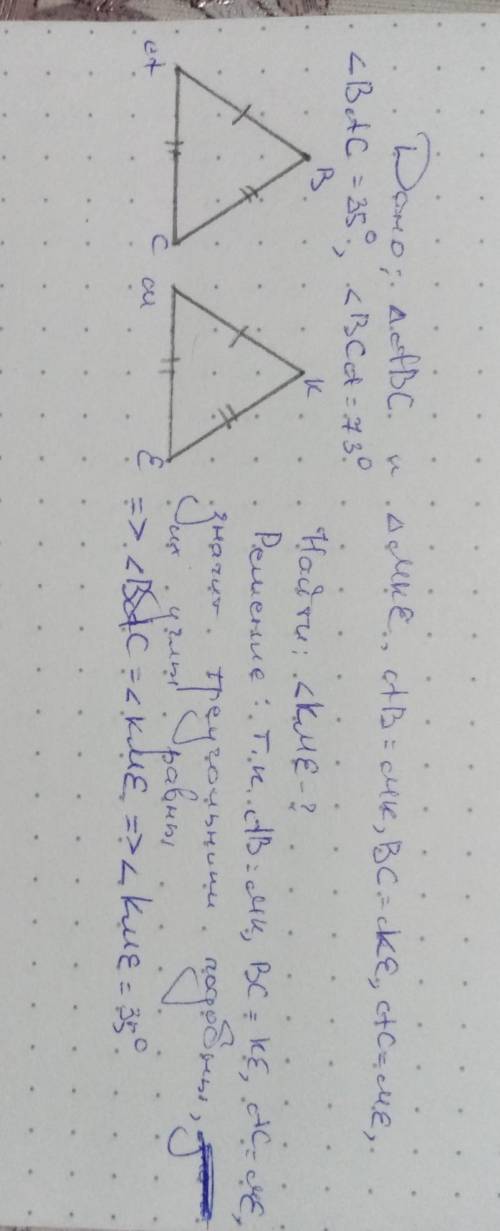 Дано: ΔABC и ΔMKE, AB=MK, BC=KE, AC=ME,
∠BAC = 35°, ∠BCA = 73°
B
A
C
K
M
E
Найти: ∠KME-?
Решение: т.к. AB=MK, BC=KE, AC=ME,
значит треугольники подобны,
их углы равны
=> ∠BAC = ∠KME => ∠KME = 35°